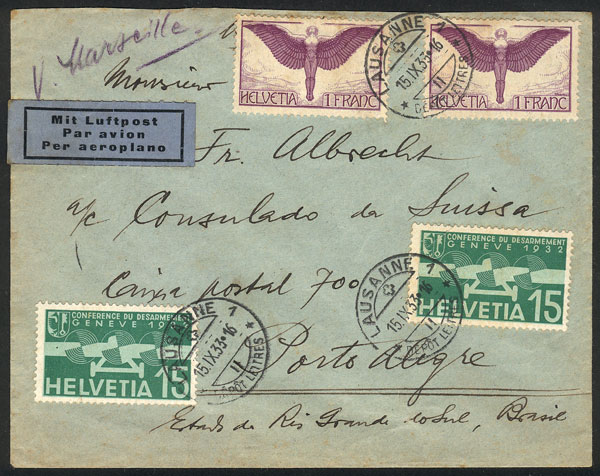 v. Marseille
Monsieur
HELVETIA 1 FRANC
HELVETIA 1 FRANC
LAUSANNE 1
15.IX.33-16
II
DÉPÔT LETTRES
Mit Luftpost
Par avion
Per aeroplano
Fr. Albrecht
a/c Consulado da Suissa
Caixa postal 700
CONFERENCE DU DESARMEMENT
GENEVE 1932
HELVETIA 15
LAUSANNE 1
15.IX.33-16
II
DÉPÔT LETTRES
CONFERENCE DU DESARMEMENT
GENEVE 19
HELVETIA 15
LAUSANNE 1
15.IX.33-16
II
DÉPÔT LETTRES
Porto Alegre
Estado de Rio Grande do Sul, Brasil